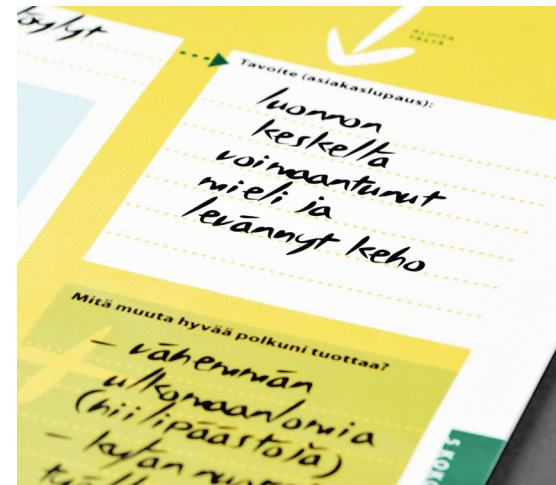 ALOITA
TÄSTÄ
Tavoite (asiakaslupaus):
luonnon
keskeltä
voimaantunut
mieli ja
levännyt keho
Mitä muuta hyvää polkuni tuottaa?
- vähemmän
ulkomaanlomia
(hiilipäästöjä)